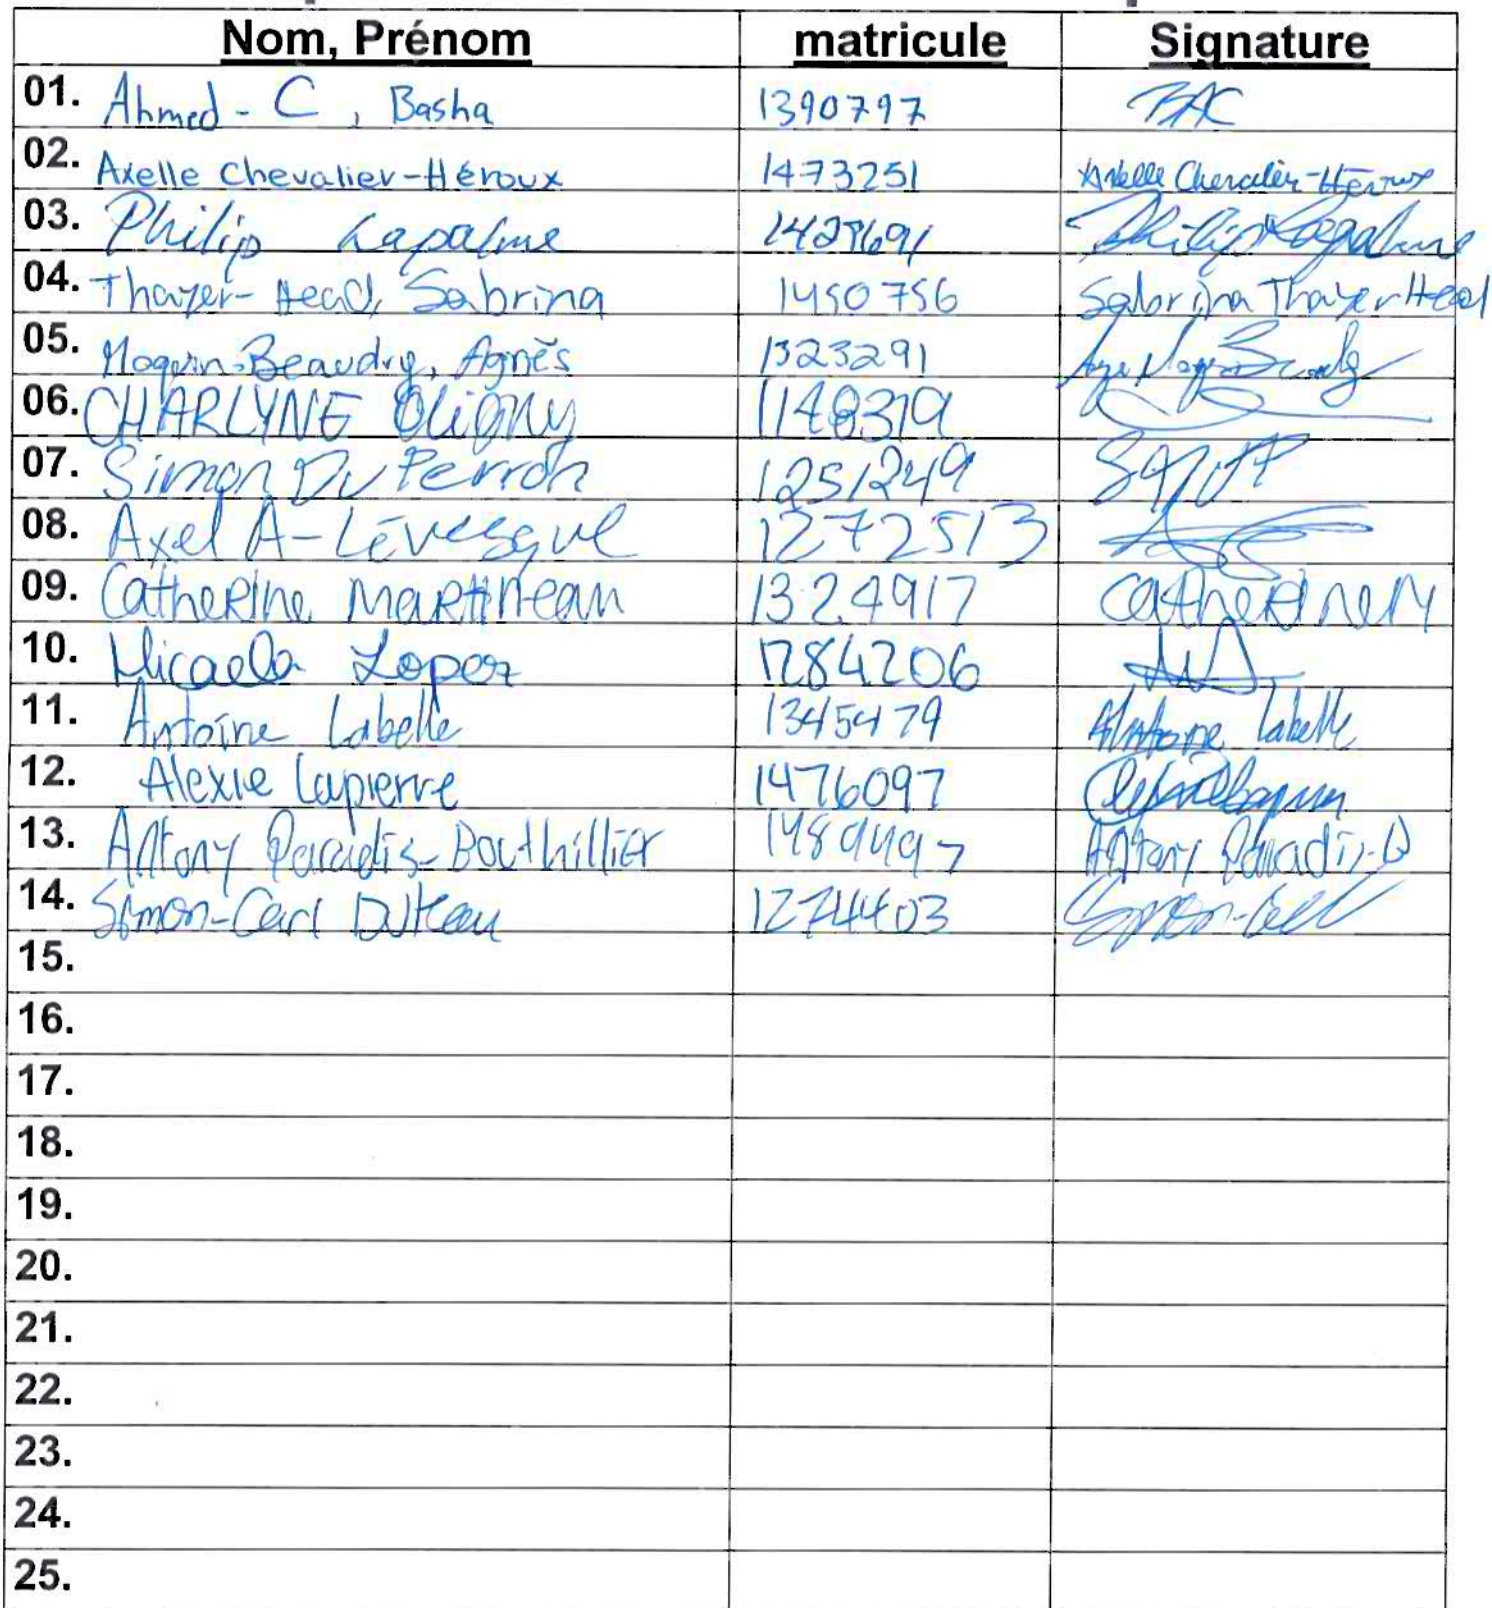 Nom, Prénom matricule Signature
01. Ahmed-C, Basha 1390797 BAC
02. Axelle Chevalier-Héroux 1473251 Axelle Chevalier-Héroux
03. Philip Lapalme Philip Lapalme
04. Thayer-Head, Sabrina 1450756 Sabrina Thayer Head
05. Moquin-Beaudry, Agnès 1323291
06. CHARLYNE Oligny 1148319
07. Simon Du Perron 1251249
08. Axel A-Lévesque 1272513
09. Catherine Martineau 1324917 Catherine M
10. Micaela Lopez 1284206
11. Antoine Labelle 1345479 Antoine Labelle
12. Alexie Lapierre 1476097
13. Antony Paradis-Bouthillier 1489497 Antony Paradis-B
14. Simon-Carl Duteau 1274403 Simon-Carl
15.
16.
17.
18.
19.
20.
21.
22.
23.
24.
25.